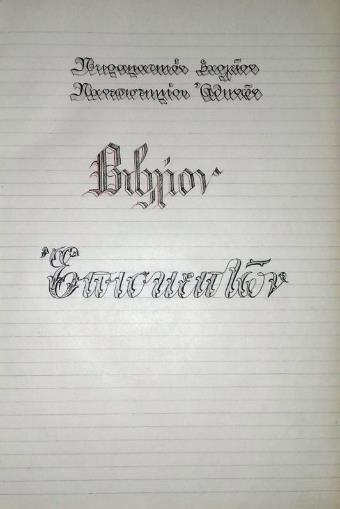 Πειραματικόν Σχολεῖον
Πανεπιστημίου Ἀθηνῶν
Βιβλίον
Ἐπισκεπτῶν